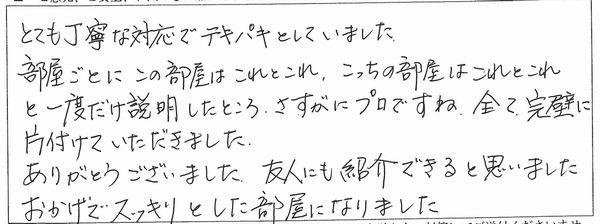 とても丁寧な対応でテキパキとしていました.
部屋ごとに この部屋は これとこれ, こっちの部屋はこれとこれ
と一度だけ説明したところ. さすがにプロですね. 全て, 完璧に
片付けていただきました.
ありがとうございました. 友人にも紹介できると思いました
おかげでスッキリとした部屋になりました